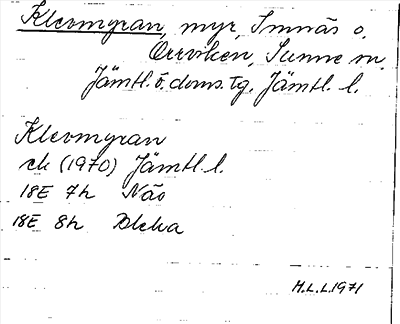 Klevmyran, myr, Imnäs o.
Orrviken, Sunne sn.
Jämtl. v. doms. tg. Jämtl. l.
Klevmyran
ek (1970) Jämtl. l.
18E 7h Näs
18E 8h Bleka
H.L.L. 1971